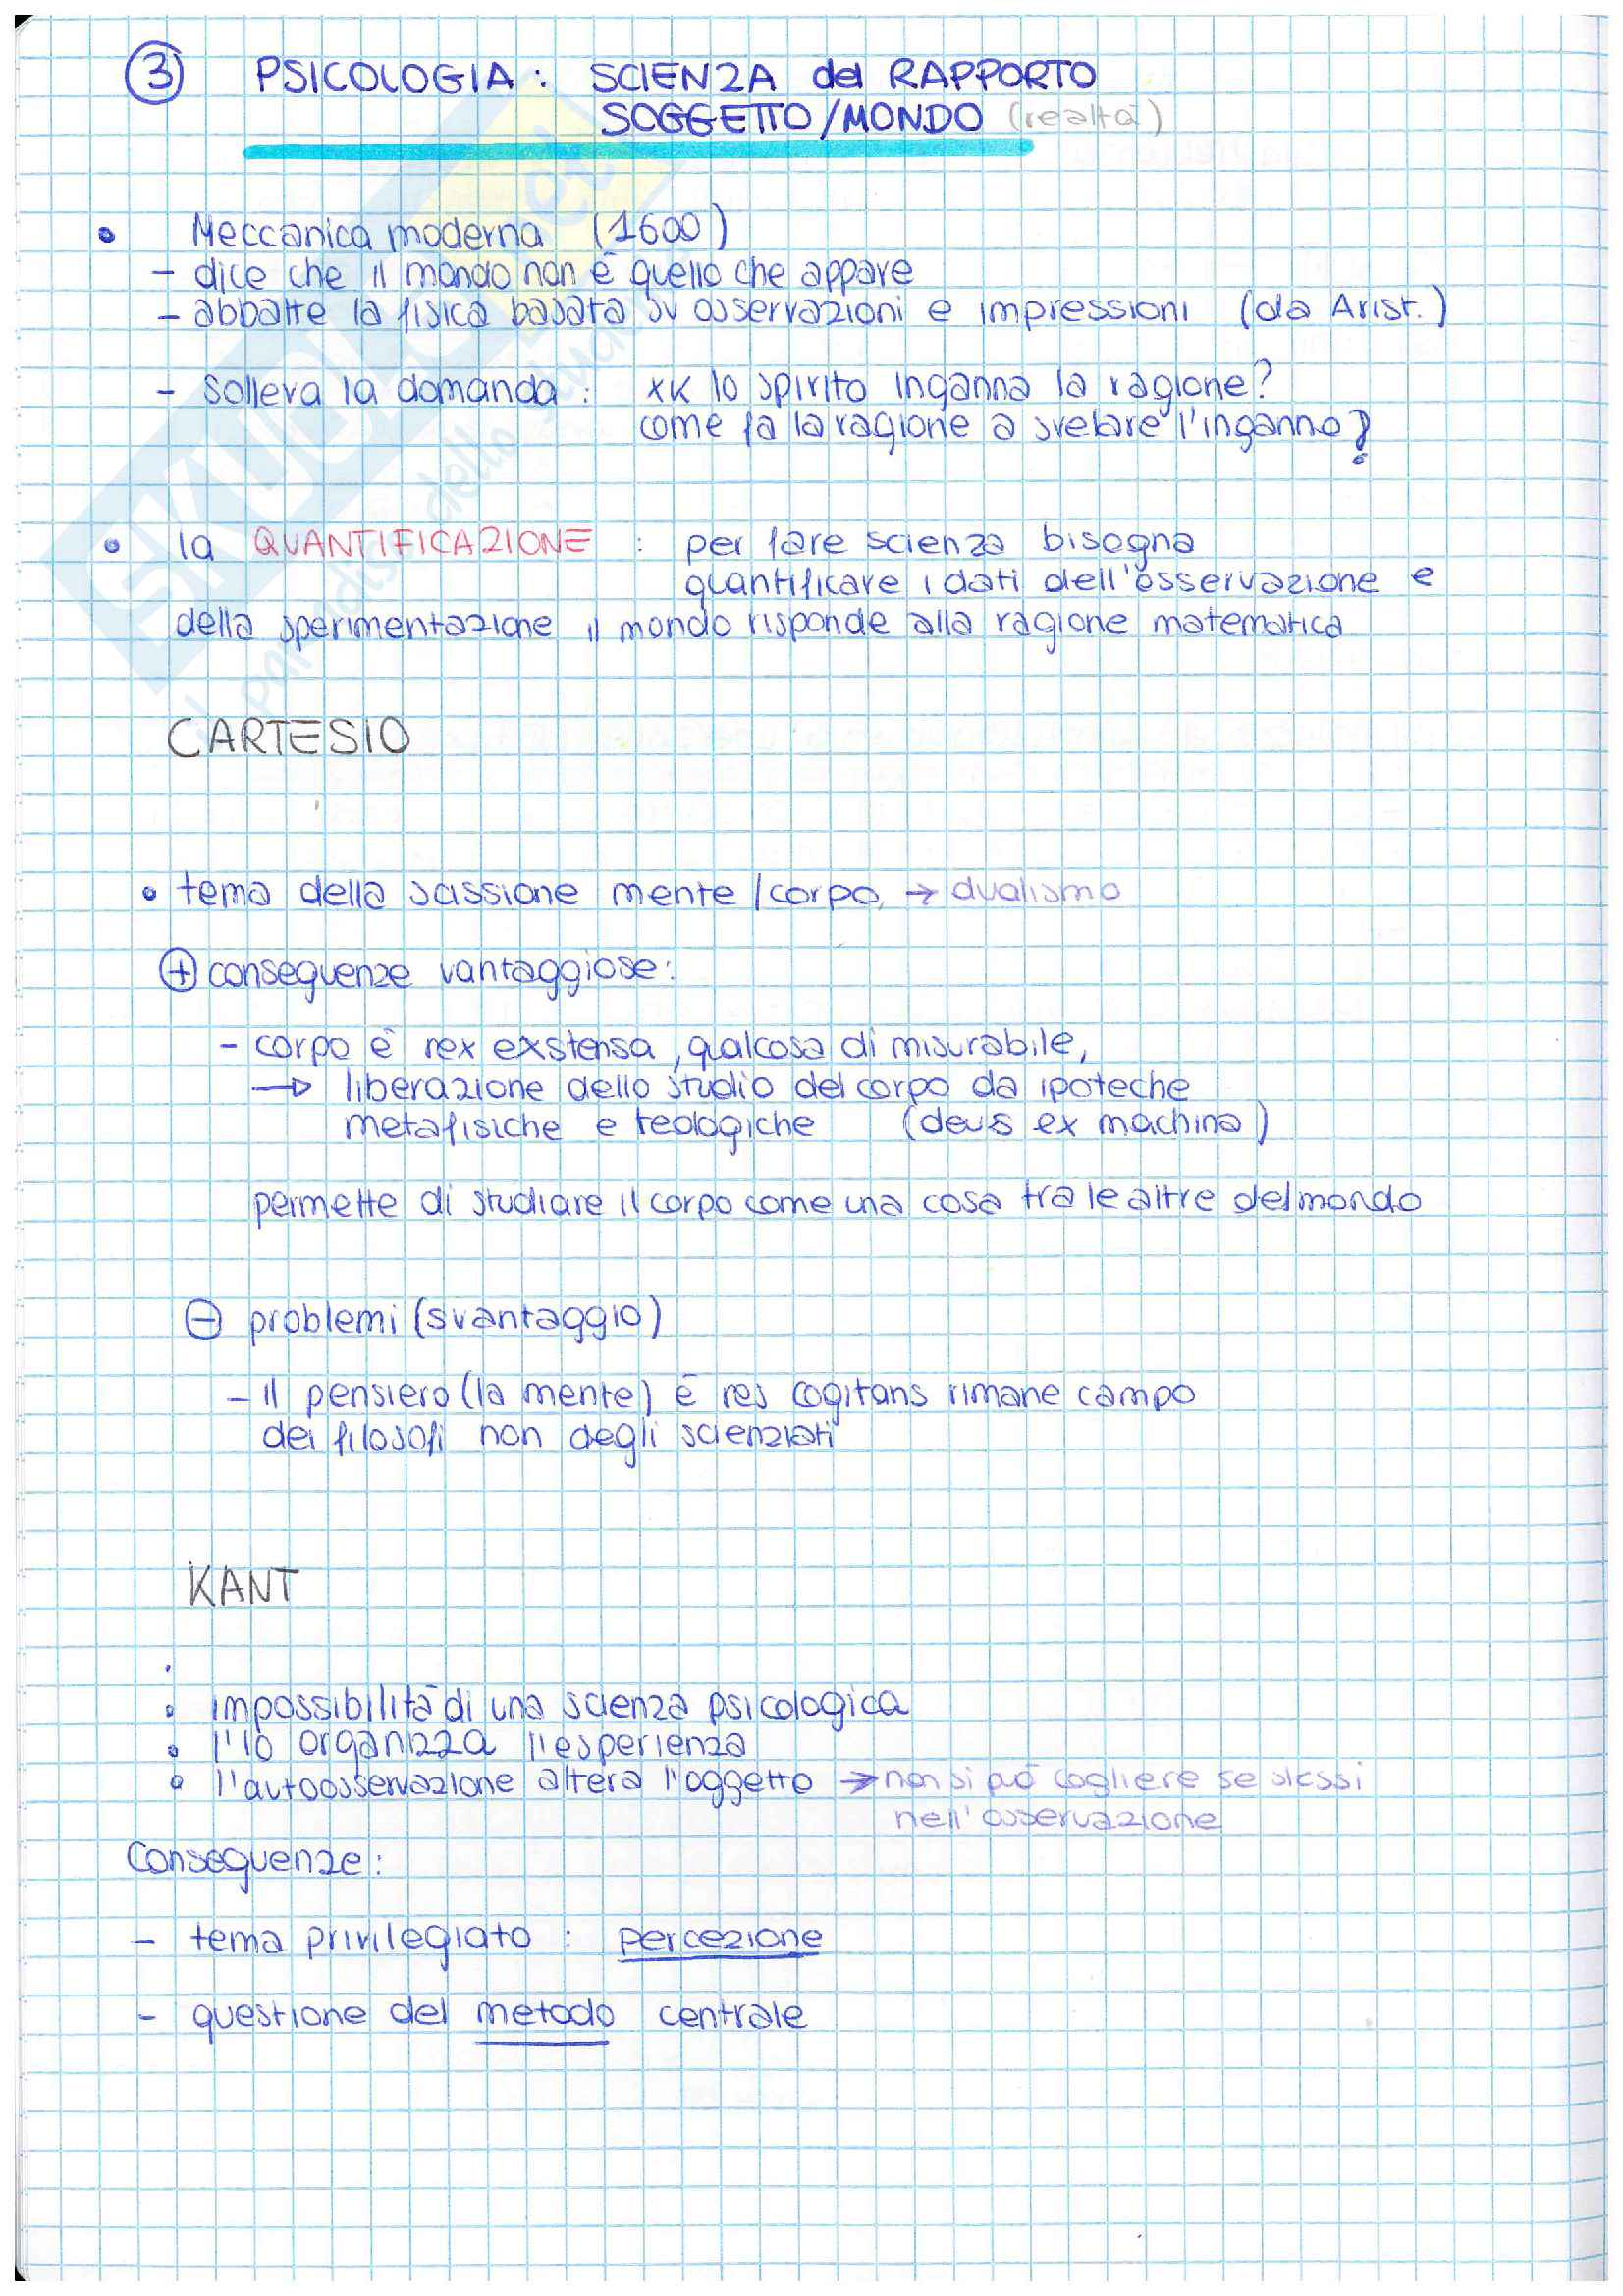 3 PSICOLOGIA: SCIENZA del RAPPORTO
SOGGETTO/MONDO (realtà)
• Meccanica moderna (1600)
- dice che il mondo non è quello che appare
- abbatte la fisica basata su osservazioni e impressioni (da Arist.)
- solleva la domanda: xk lo spirito inganna la ragione?
come fa la ragione a svelare l'inganno?
• la QUANTIFICAZIONE: per fare scienza bisogna
quantificare i dati dell'osservazione e
della sperimentazione il mondo risponde alla ragione matematica
CARTESIO
• tema della scissione mente/corpo → dualismo
+ conseguenze vantaggiose:
- corpo è rex exstensa, qualcosa di misurabile,
→ liberazione dello studio del corpo da ipoteche
metafisiche e teologiche (deus ex machina)
permette di studiare il corpo come una cosa tra le altre del mondo
- problemi (svantaggio)
- il pensiero (la mente) è res cogitans rimane campo
dei filosofi non degli scienziati
KANT
• impossibilità di una scienza psicologica
• l'io organizza l'esperienza
• l'autoosservazione altera l'oggetto → non si può cogliere se stessi
nell'osservazione
Conseguenze:
- tema privilegiato: percezione
- questione del metodo centrale